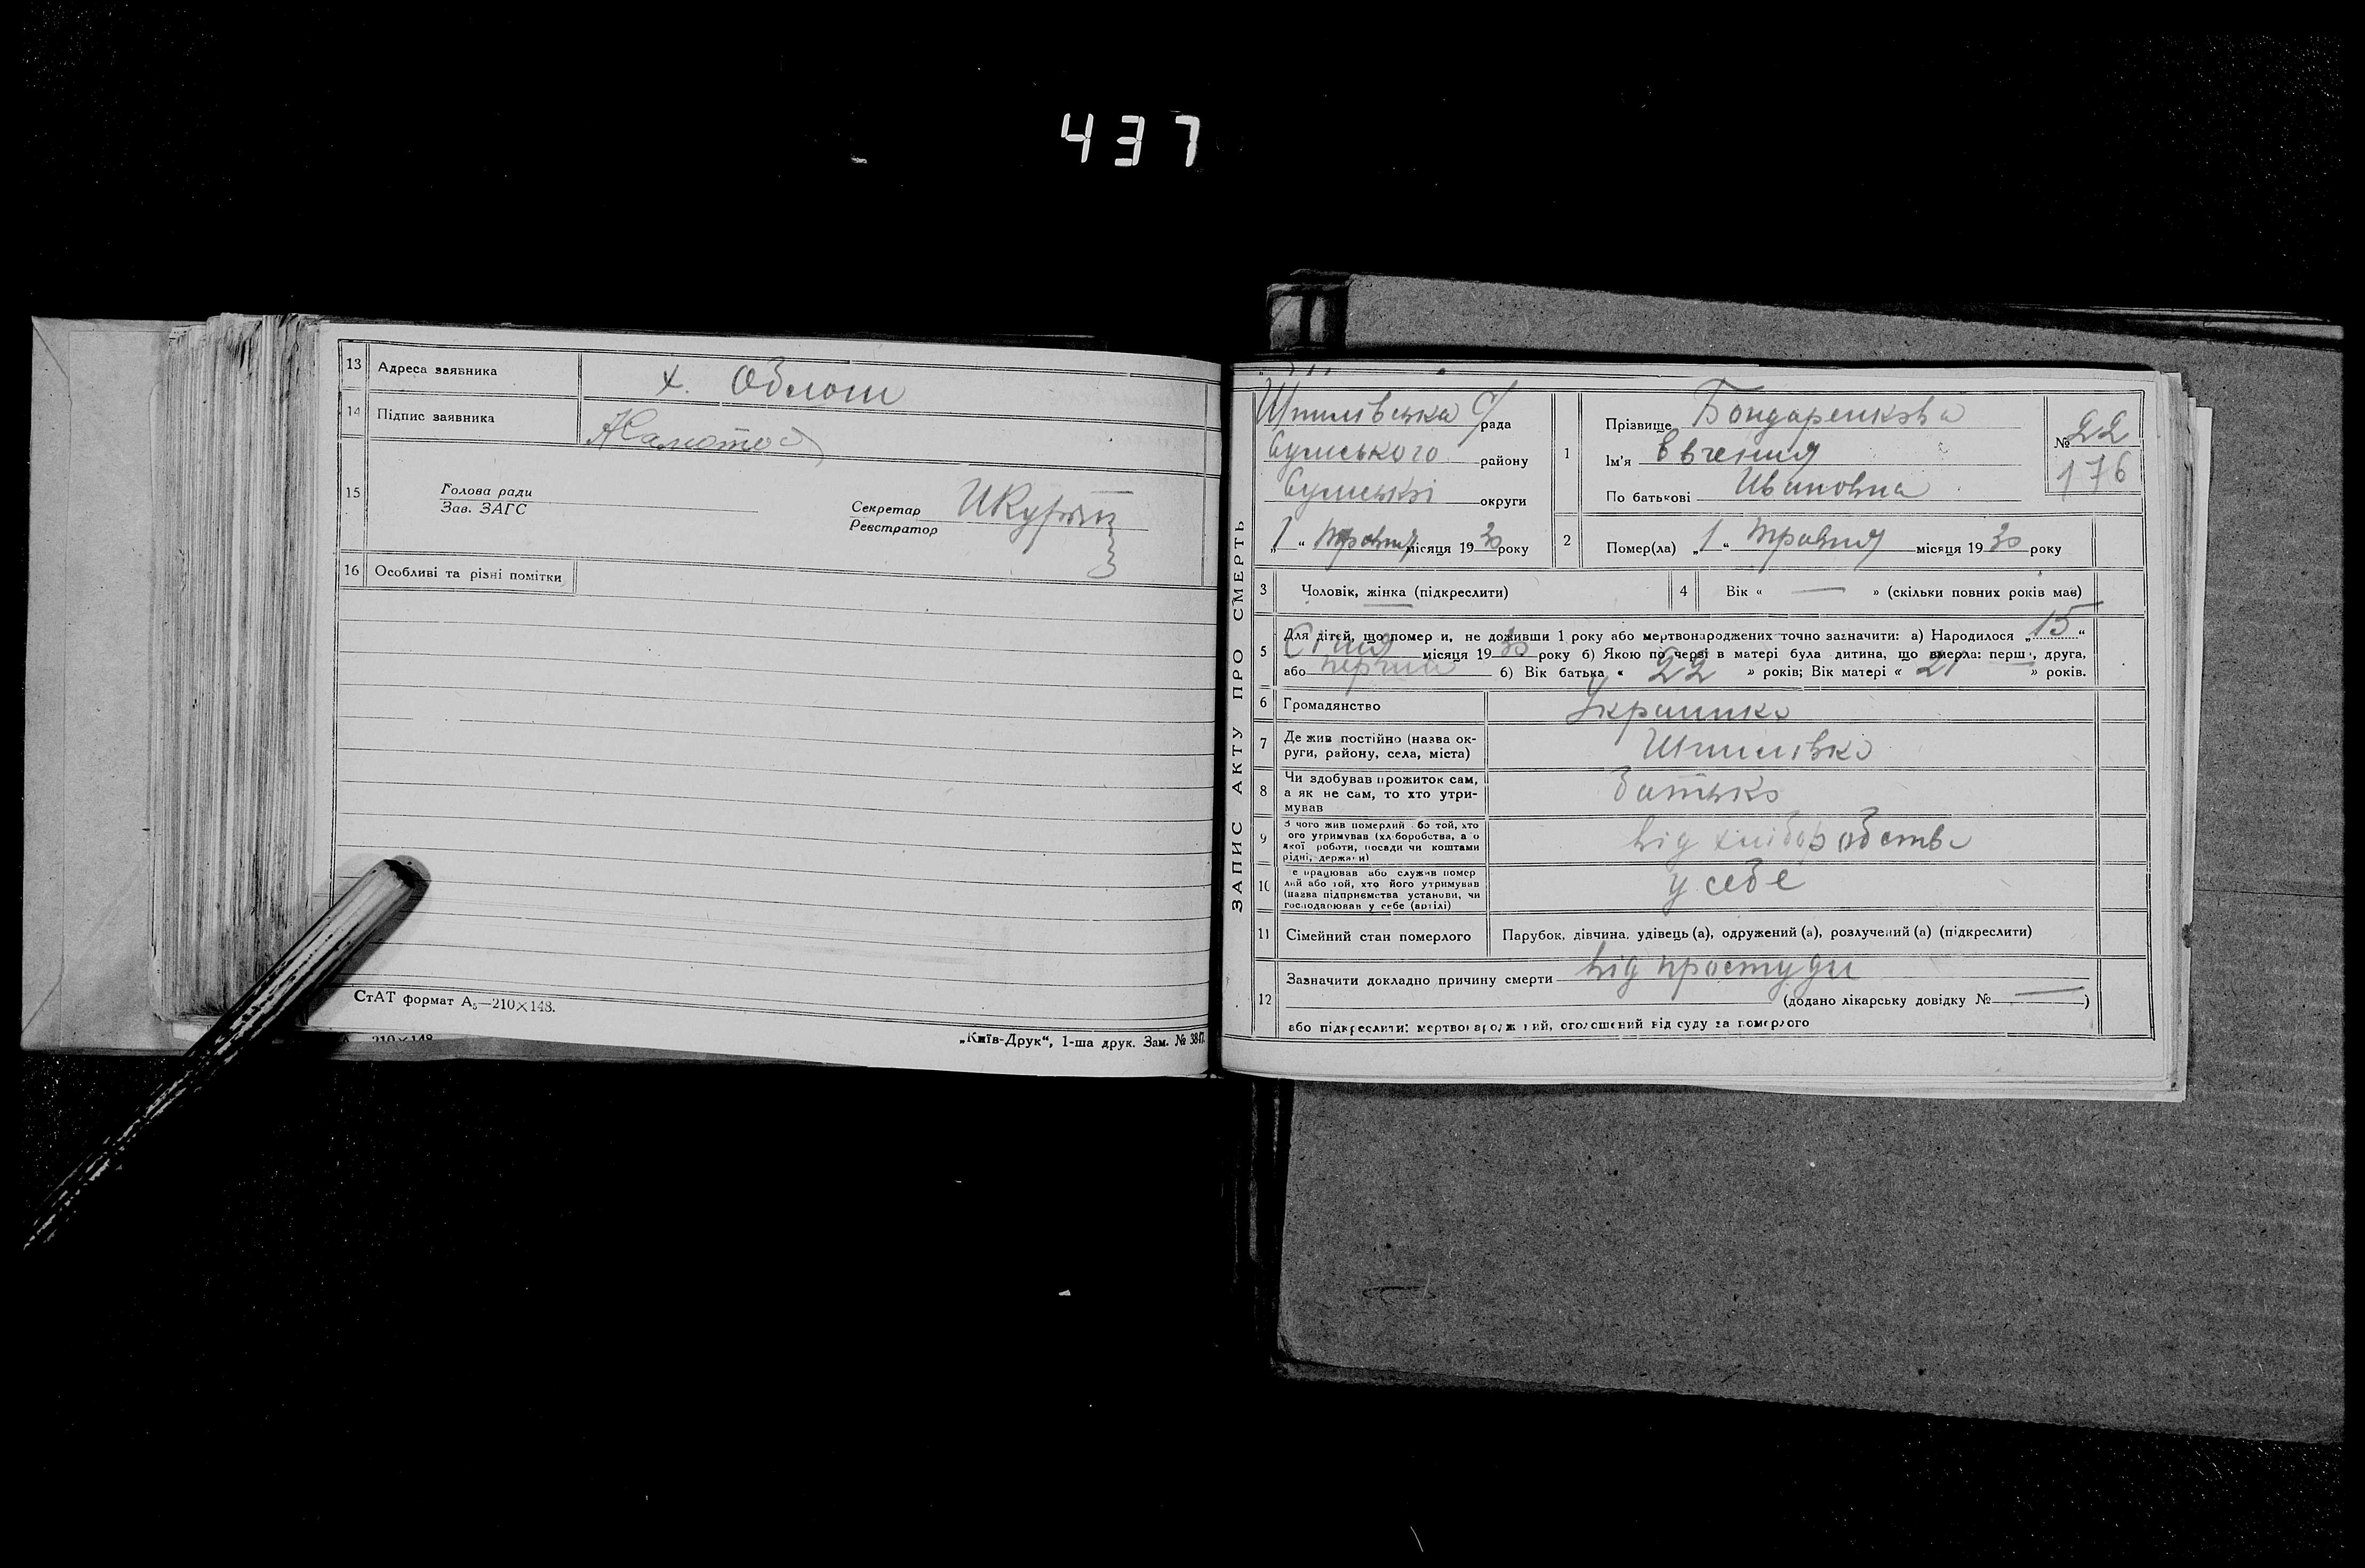 437
13 Адреса заявника х. Облоги
14 Підпис заявника
15 Голова ради
Зав. ЗАГС
Секретар
Реєстратор
16 Особливі та різні помітки
СтАТ формат А₅—210×148.
210×148
„Київ-Друк“, 1-ша друк. Зам. №
ЗАПИС АКТУ ПРО СМЕРТЬ
Шпилівська С/рада
Сумського району
Сумської округи
„1“ травня місяця 1930 року
1 Прізвище Бондаренкова
Ім'я Євгения
По батькові Ивановна
№ 22
176
2 Помер(ла) „1“ травня місяця 1930 року
3 Чоловік, жінка (підкреслити)
4 Вік « — » (скільки повних років мав)
5 Для дітей, що помер и, не доживши 1 року або мертвонароджених точно зазначити: а) Народилося „15“
Січня місяця 1930 року б) Якою по черзі в матері була дитина, що вмерла: перша, друга,
або б) Вік батька « 22 » років; Вік матері « 21 » років.
6 Громадянство Украинка
7 Де жив постійно (назва ок-
руги, району, села, міста) Шпилівка
8 Чи здобував прожиток сам,
а як не сам, то хто утри-
мував батько
9 З чого жив померлий або той, хто
його утримував (хліборобства, а о
якої роботи, посади чи коштами
рідні, держави) від хліборобства
10 е працював або служив помер
лий або той, хто його утримував
(назва підприємства установи, чи
господарював у себе (артілі) у себе
11 Сімейний стан померлого Парубок, дівчина, удівець (а), одружений (а), розлучений (а) (підкреслити)
12 Зазначити докладно причину смерти від простуди
(додано лікарську довідку № — )
або підкреслити: мертвонароджений, оголошений від суду за померлого